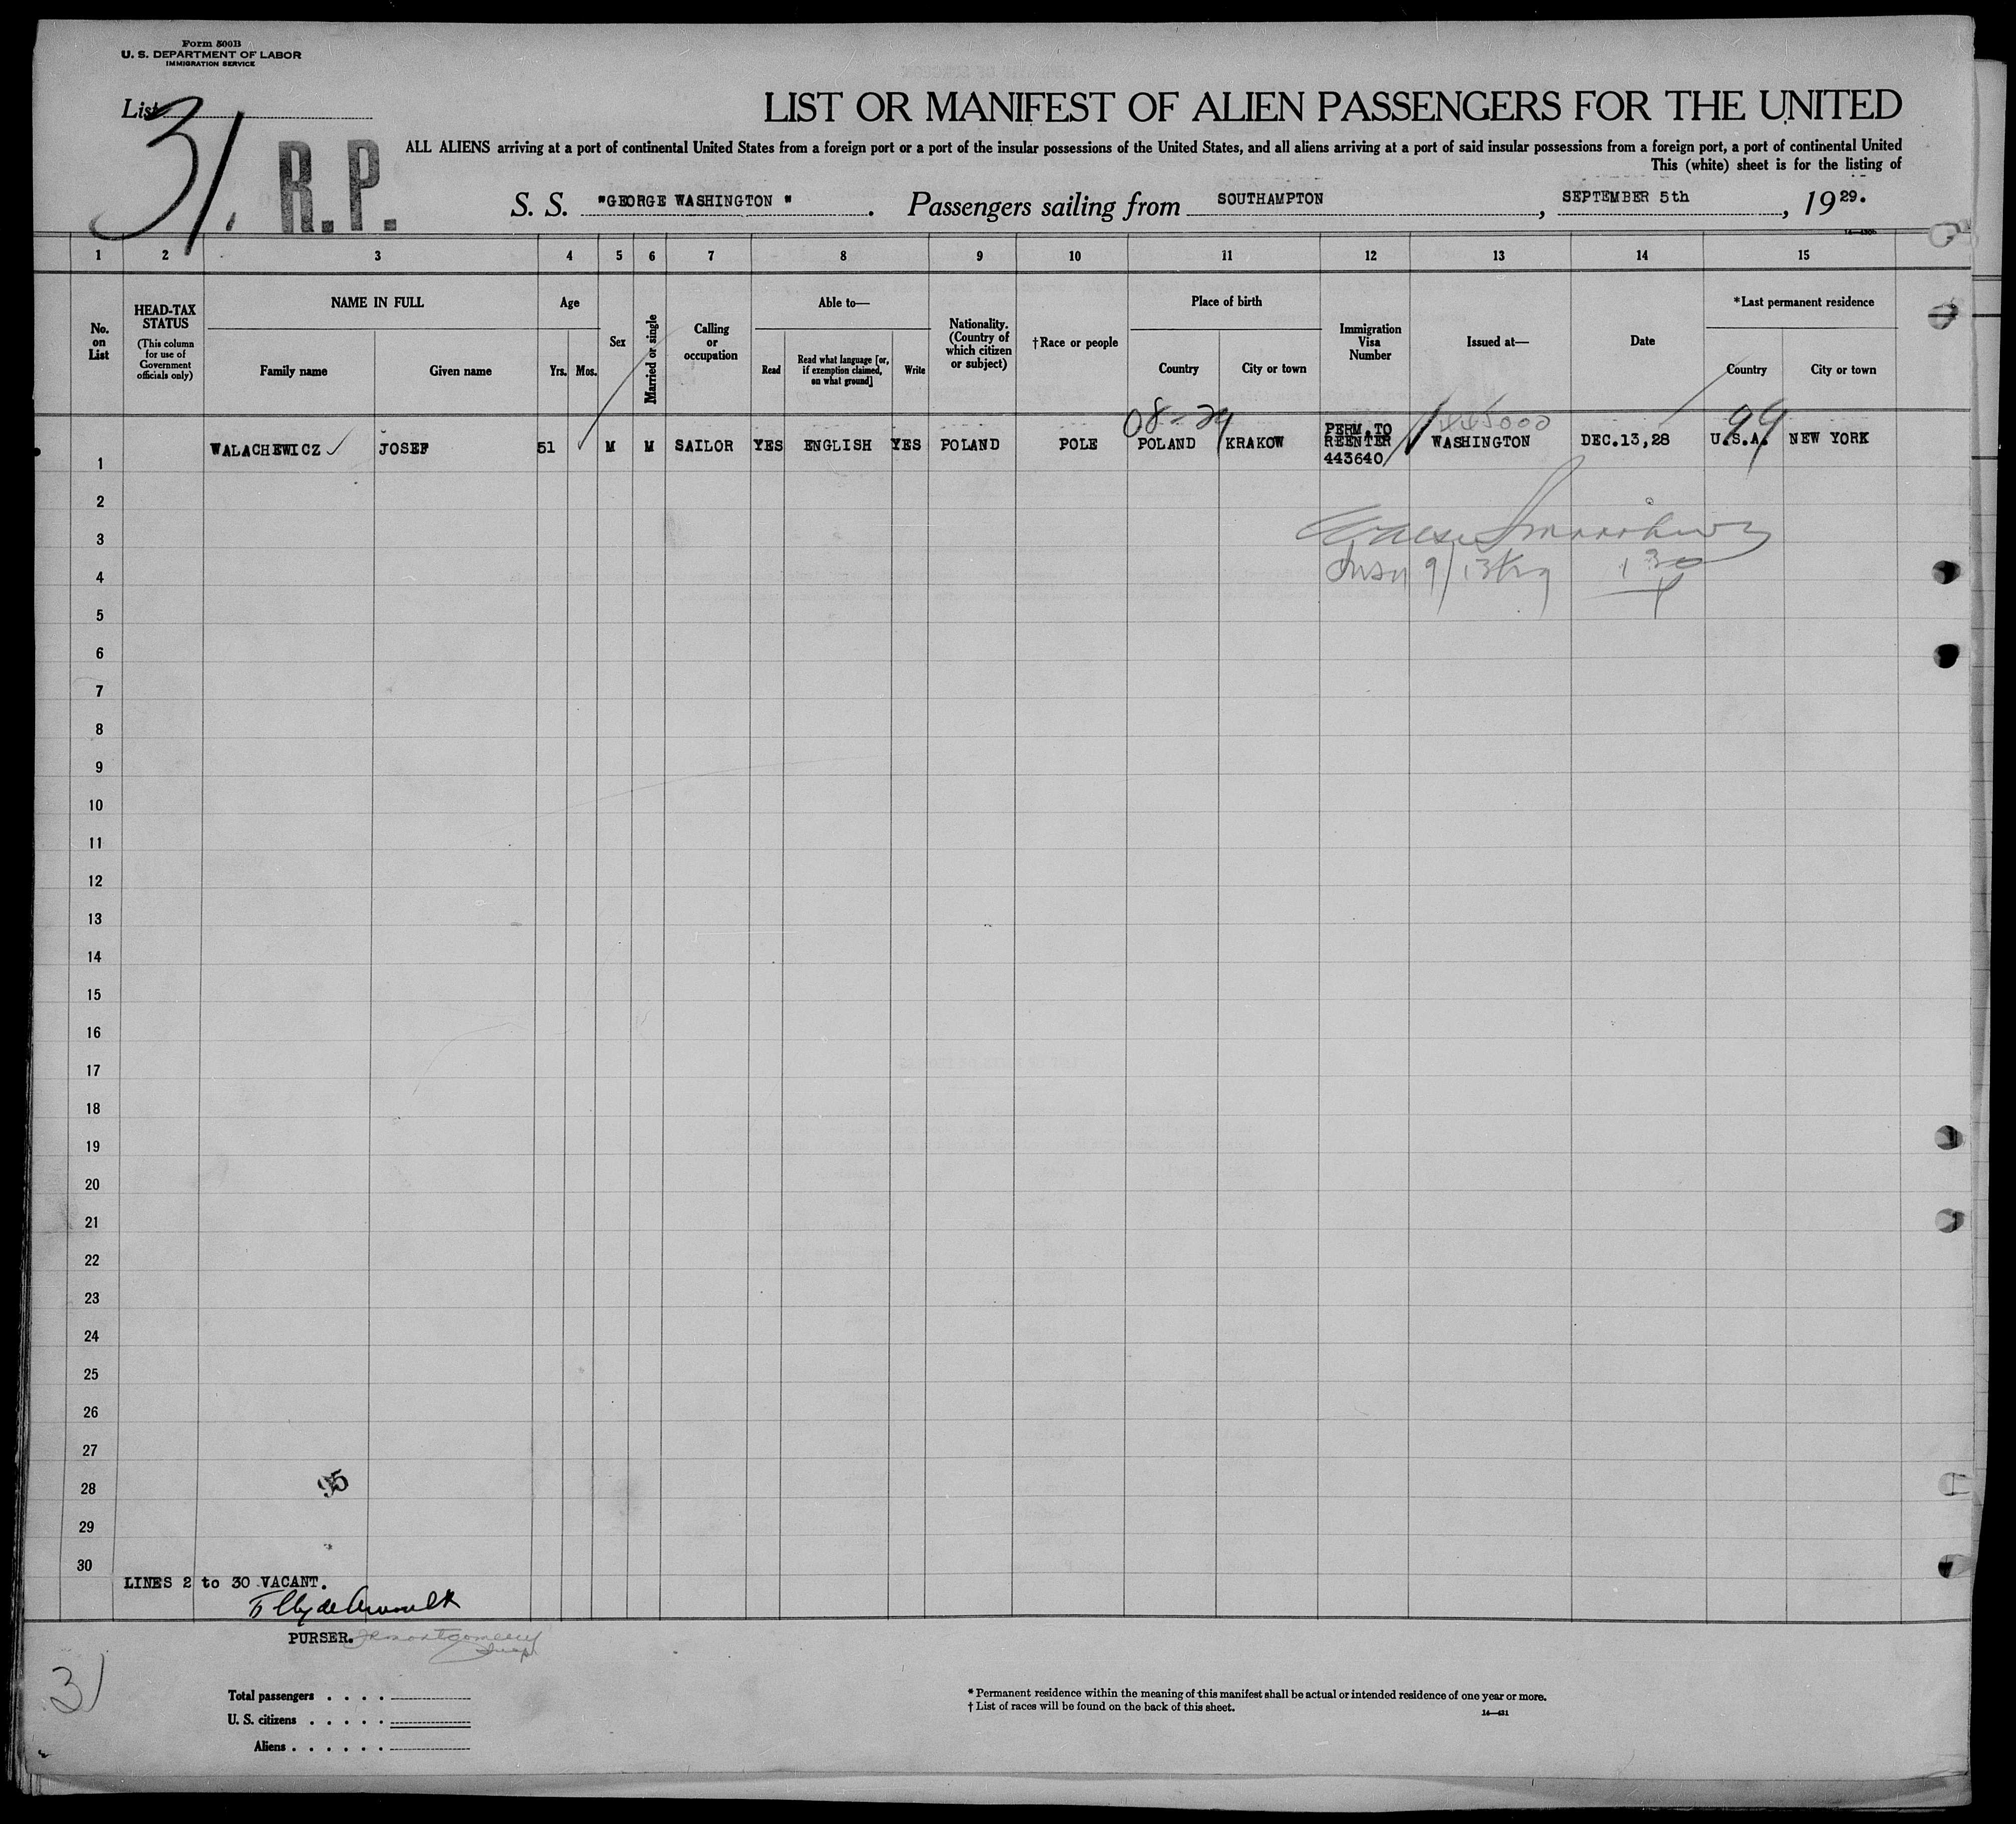 Form 500B
U. S. DEPARTMENT OF LABOR
IMMIGRATION SERVICE
List
31.
R.P.
LIST OR MANIFEST OF ALIEN PASSENGERS FOR THE UNITED
ALL ALIENS arriving at a port of continental United States from a foreign port or a port of the insular possessions of the United States, and all aliens arriving at a port of said insular possessions from a foreign port, a port of continental United
This (white) sheet is for the listing of
S. S. "GEORGE WASHINGTON ". Passengers sailing from SOUTHAMPTON, SEPTEMBER 5th, 1929.
1 2 3 4 5 6 7 8 9 10 11 12 13 14 15
No. on List
HEAD-TAX STATUS
(This column for use of Government officials only)
NAME IN FULL
Family name Given name
Age
Yrs. Mos.
Sex
Married or single
Calling or occupation
Able to—
Read
Read what language [or, if exemption claimed, on what ground]
Write
Nationality. (Country of which citizen or subject)
†Race or people
Place of birth
Country City or town
Immigration Visa Number
Issued at—
Date
*Last permanent residence
Country City or town
08-24
99
1 WALACHEWICZ JOSEF 51 M M SAILOR YES ENGLISH YES POLAND POLE POLAND KRAKOW PERM.TO REENTER 443640 WASHINGTON DEC.13,28 U.S.A. NEW YORK
2
3
4
5
6
7
8
9
10
11
12
13
14
15
16
17
18
19
20
21
22
23
24
25
26
27
95
28
29
30
LINES 2 to 30 VACANT.
PURSER.
31
Total passengers . . . .
U. S. citizens . . . . .
Aliens . . . . . .
* Permanent residence within the meaning of this manifest shall be actual or intended residence of one year or more.
† List of races will be found on the back of this sheet.
14—431